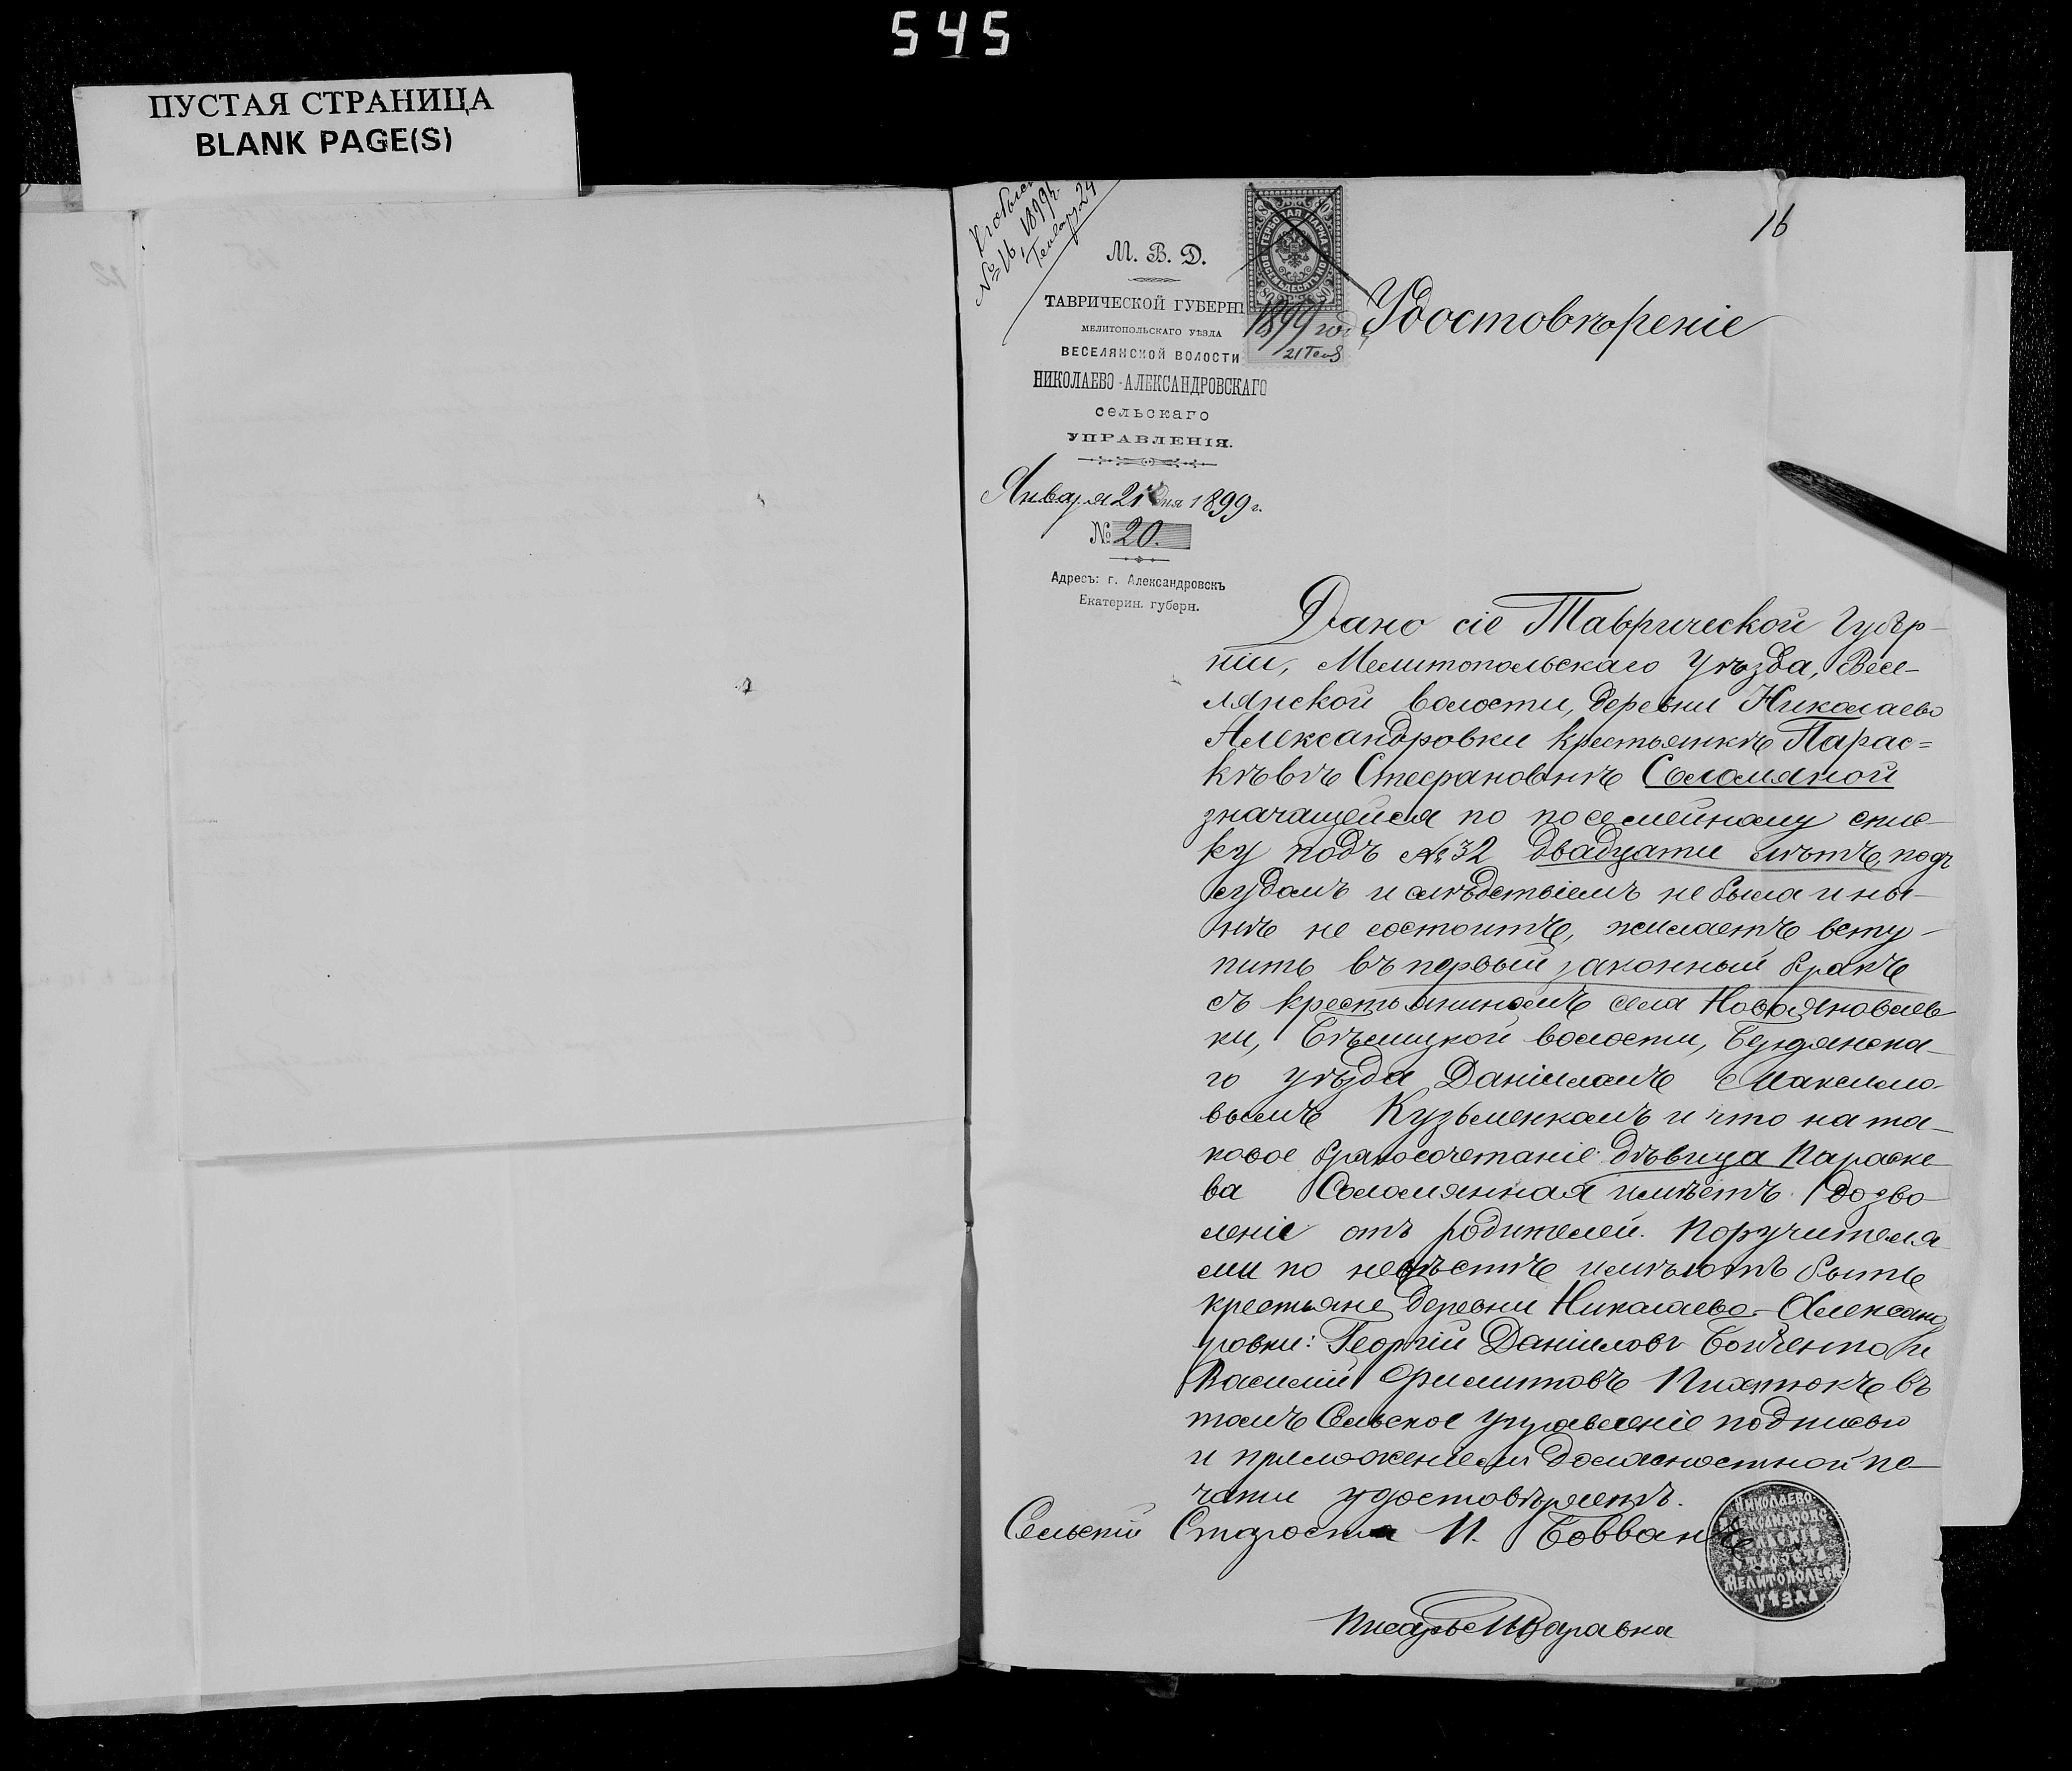 545
ПУСТАЯ СТРАНИЦА
BLANK PAGE(S)
16
№ 16, 1899 г.
Генвар 24
М. В. Д.
ТАВРИЧЕСКОЙ ГУБЕРНІ
МЕЛИТОПОЛЬСКАГО УѢЗДА
ВЕСЕЛЯНСКОЙ ВОЛОСТИ
НИКОЛАЕВО-АЛЕКСАНДРОВСКАГО
СЕЛЬСКАГО
УПРАВЛЕНІЯ.
Января 21 дня 1899 г.
№ 20.
Адресъ: г. Александровскъ
Екатерин. губерн.
ГЕРБОВАЯ МАРКА
ВОСЕМЬДЕСЯТЪ КОП
80 80 80 80
1899 года
21 Генв
Удостовѣреніе
Дано сіе Таврической Губѣр-
ніи, Мелитопольскаго уѣзда, Весе-
лянской волости, деревни Николаево
Александровки крестьянкѣ Парас=
кѣвѣ Стефановнѣ Соломяной
значащейся по посемейному спис-
ку подъ № 32 двадцати лѣтъ, подъ
судомъ и слѣдствіемъ не была и ны-
нѣ не состоитъ, желаетъ всту-
пить въ первый законный бракъ
съ крестьяниномъ села Новояковлев
ки, Бѣлицкой волости, Бердянска-
го уѣзда Даніиломъ Максимо-
вымъ Кузьменкомъ и что на та-
ковое бракосочетаніе дѣвица Параске-
ва Соломянная имѣетъ дозво-
леніе отъ родителей. Поручителя-
ми по невѣстѣ имѣютъ быть
крестьяне деревни Николаево-Александ
ровки: Георгій Даніиловъ Бойченко и
Василій Филиповъ Пихтюкъ въ
томъ Сельское управленіе подписью
и приложеніемъ должностной пе-
чати удостовѣряетъ.
Сельскій Староста И. Бовванъ
НИКОЛАЕВО-
АЛЕКСАНДРОВС.
СЕЛЬСКІЙ
СТАРОСТА
МЕЛИТОПОЛЬСК
УѢЗДА
Писарь Шкаравка